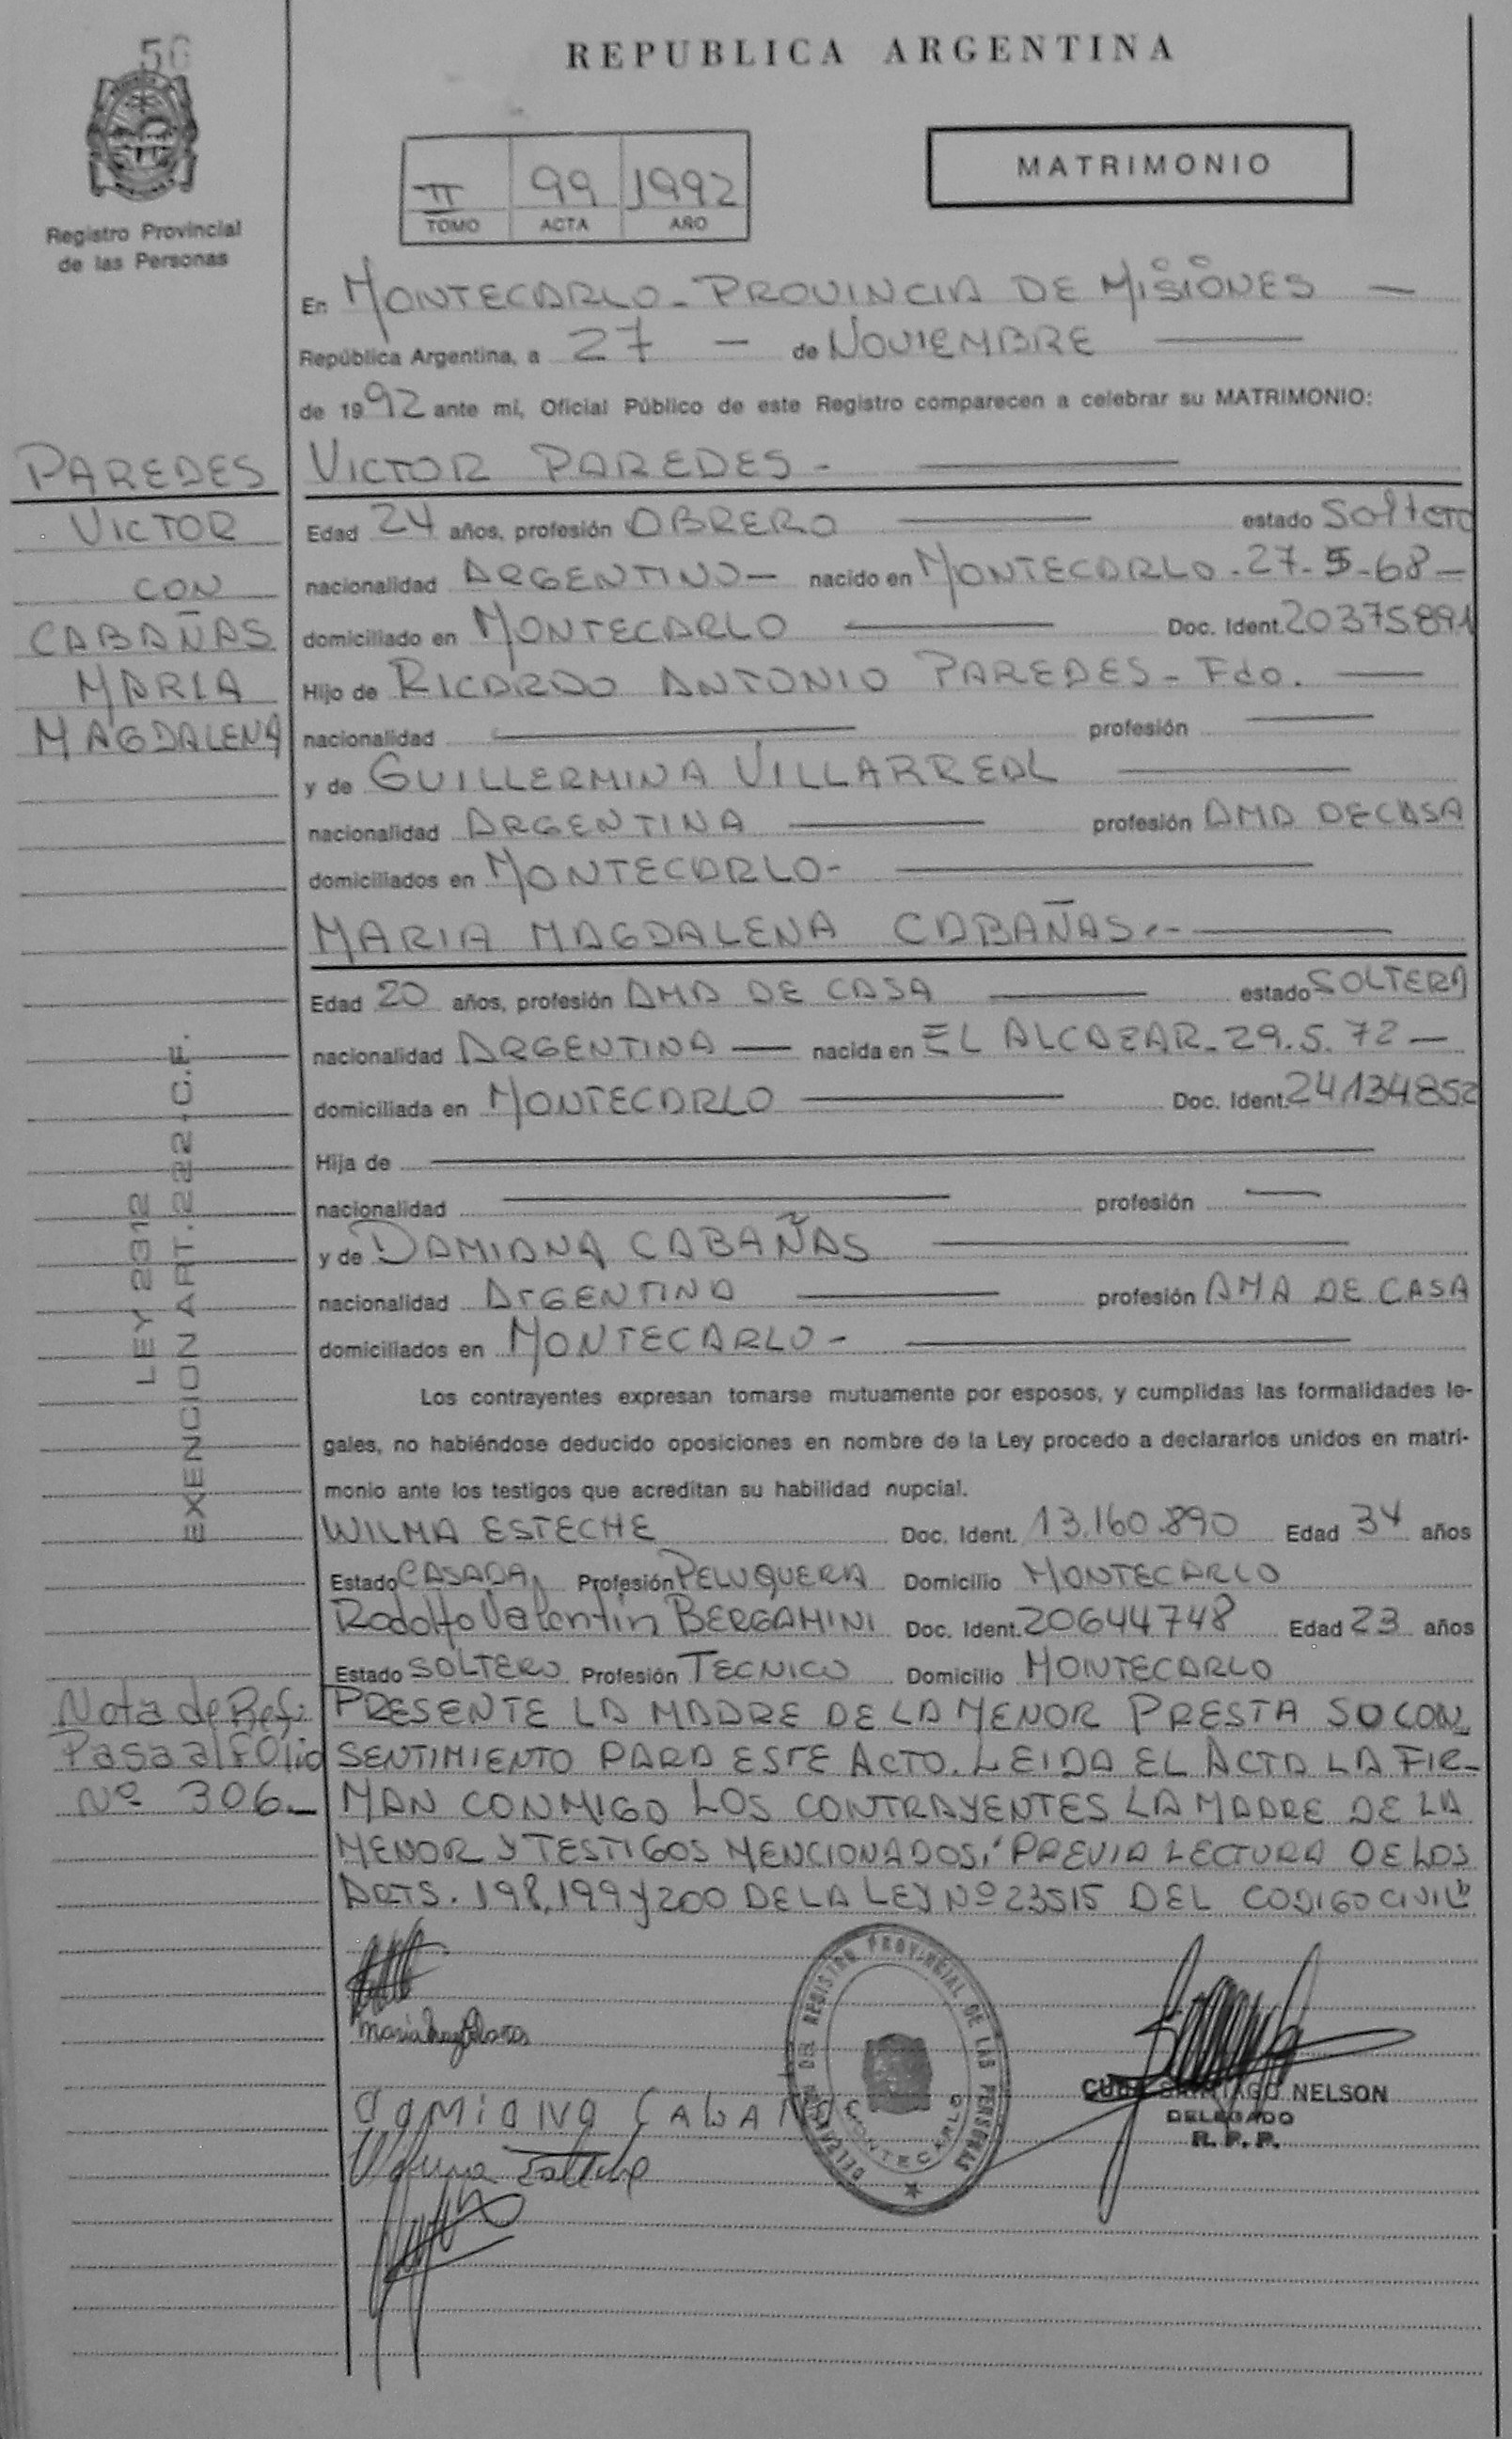 56
REPUBLICA ARGENTINA
MATRIMONIO
II 99 1992
TOMO ACTA AÑO
Registro Provincial
de las Personas
En MONTECARLO - PROVINCIA DE MISIONES —
República Argentina, a 27 — de NOVIEMBRE
de 1992 ante mí, Oficial Público de este Registro comparecen a celebrar su MATRIMONIO:
PAREDES
VICTOR
CON
CABAÑAS
MARIA
MAGDALENA
VICTOR PAREDES -
Edad 24 años, profesión OBRERO estado Soltero
nacionalidad ARGENTINO — nacido en MONTECARLO - 27-5-68 —
domiciliado en MONTECARLO Doc. Ident. 20375891
Hijo de RICARDO ANTONIO PAREDES - Fdo.
nacionalidad profesión
y de GUILLERMINA VILLARREAL
nacionalidad ARGENTINA profesión AMA DE CASA
domiciliados en MONTECARLO-
MARIA MAGDALENA CABAÑAS.-
Edad 20 años, profesión AMA DE CASA estado SOLTERA
nacionalidad ARGENTINA — nacida en EL ALCAZAR - 29.5.72 —
domiciliada en MONTECARLO Doc. Ident. 24.134.852
Hija de
nacionalidad profesión
y de DAMIANA CABAÑAS
nacionalidad ARGENTINA profesión AMA DE CASA
domiciliados en MONTECARLO -
Los contrayentes expresan tomarse mutuamente por esposos, y cumplidas las formalidades le-
gales, no habiéndose deducido oposiciones en nombre de la Ley procedo a declararlos unidos en matri-
monio ante los testigos que acreditan su habilidad nupcial.
WILMA ESTECHE Doc. Ident. 13.160.890 Edad 34 años
Estado CASADA, Profesión PELUQUERA Domicilio MONTECARLO
Rodolfo Valentin BERGAMINI Doc. Ident. 20644748 Edad 23 años
Estado SOLTERO Profesión TECNICO Domicilio MONTECARLO
PRESENTE LA MADRE DE LA MENOR PRESTA SU CON_
SENTIMIENTO PARA ESTE ACTO. LEIDA EL ACTA LA FIR-
MAN CONMIGO LOS CONTRAYENTES LA MADRE DE LA
MENOR Y TESTIGOS MENCIONADOS, "PREVIA LECTURA DE LOS
ARTS. 198, 199 y 200 DE LA LEY Nº 23515 DEL CODIGO CIVIL"
LEY 2312
EXENCION ART. 222-C.F.
Nota de Ref:
Pasa al FOlio
Nº 306.-
Damiana Cabañas
Wilma Esteche
DELEGACION DEL REGISTRO PROVINCIAL DE LAS PERSONAS
MONTECARLO
SANTIAGO NELSON
DELEGADO
R. P. P.